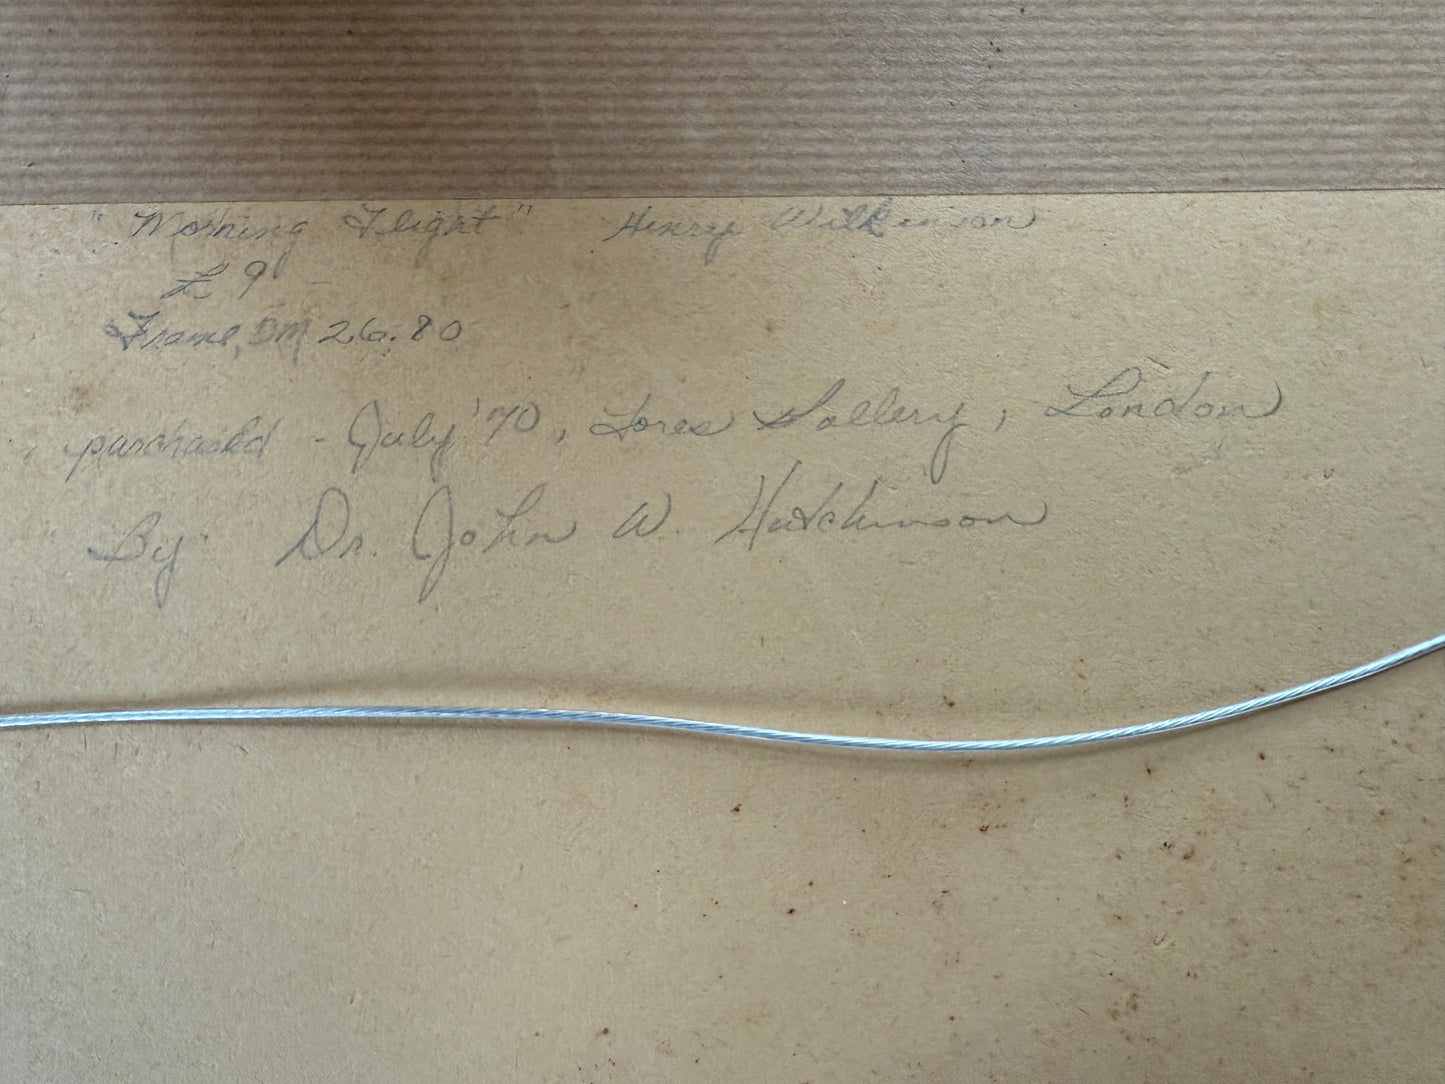 "Morning Flight" Henry Wilkinson
£ 9 -
Frame, DM 26.80
purchased - July '70, Gallery, London
By: Dr. John W. Hutchinson